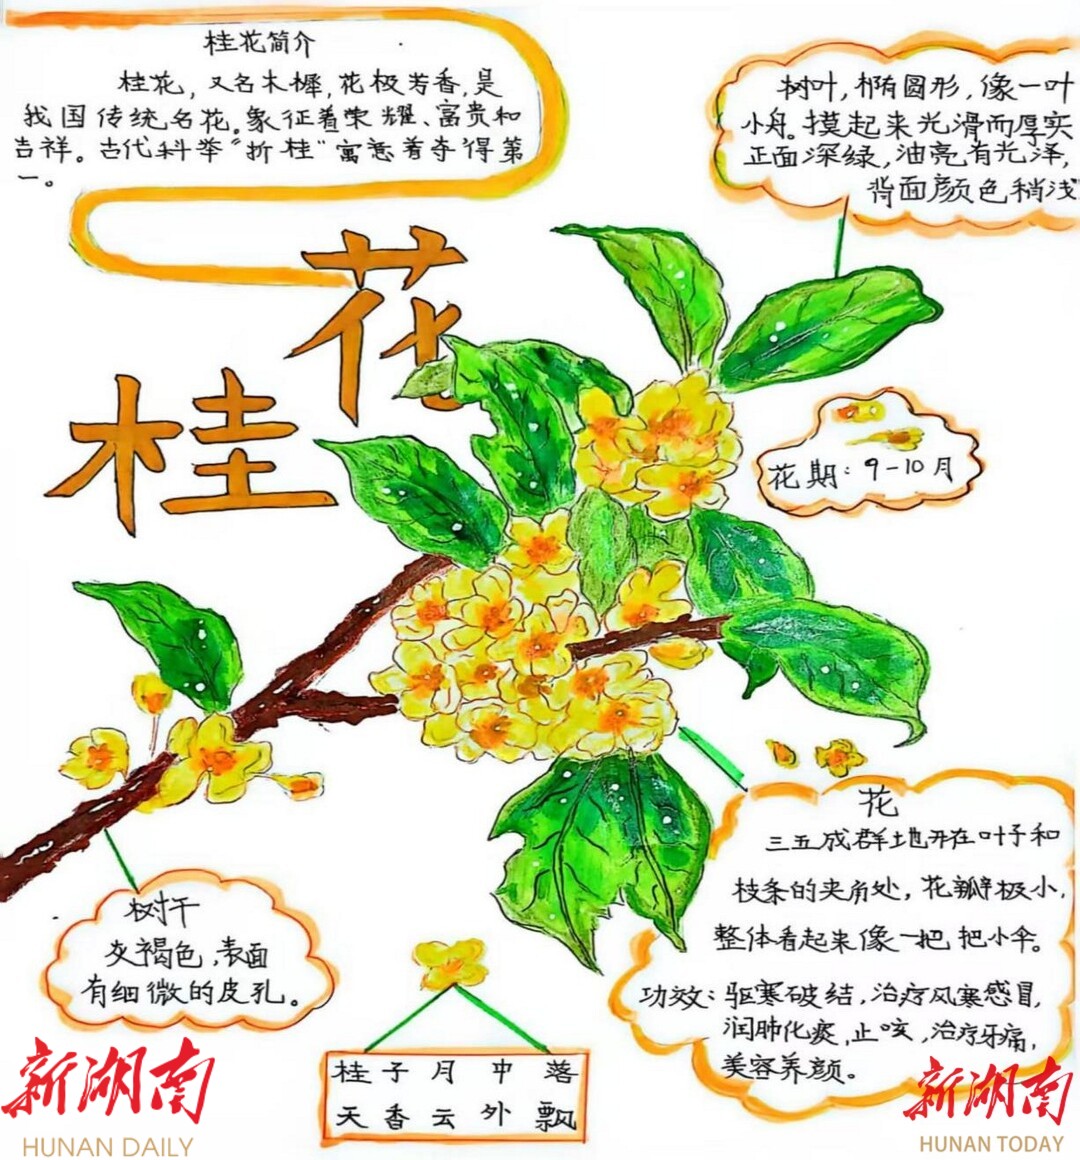 桂花简介
桂花，又名木樨，花极芳香，是
我国传统名花。象征着荣耀、富贵和
吉祥。古代科举“折桂”寓意着夺得第
一。
树叶，椭圆形，像一叶
小舟。摸起来光滑而厚实
正面深绿，油亮有光泽，
背面颜色稍浅
花
桂
花期：9-10月
花
三五成群地开在叶子和
枝条的夹角处，花瓣极小，
整体看起来像一把把小伞。
功效：驱寒破结，治疗风寒感冒，
润肺化痰，止咳，治疗牙痛，
美容养颜。
树干
灰褐色，表面
有细微的皮孔。
桂子月中落
天香云外飘
新湖南
HUNAN DAILY
新湖南
HUNAN TODAY